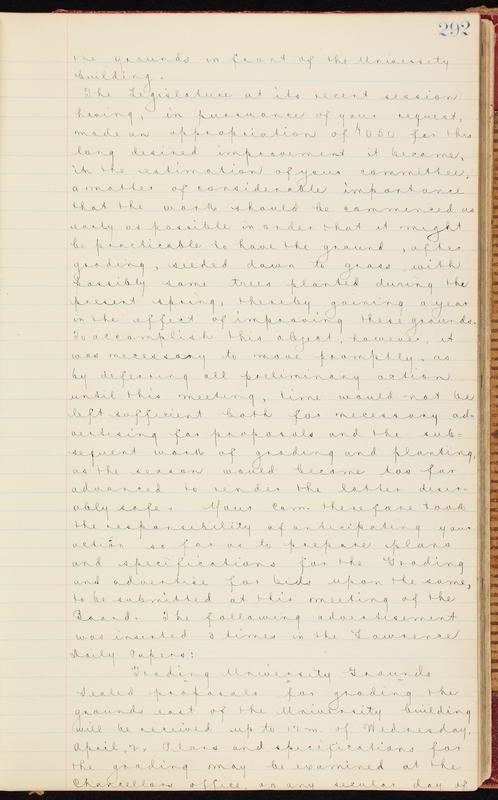 292
the grounds in front of the University
building.
The Legislature at its recent session
having, in pursuance of your request,
made an appropriation of $4050 for this
long desired improvement it became,
in the estimation of your committee,
a matter of considerable importance
that the work should be commenced as
early as possible in order that it might
be practicable to have the ground, after
grading, seeded down to grass with
possibly some trees planted during the
present spring, thereby gaining a year
in the effect of improving these grounds.
To accomplish this object, however, it
was necessary to move promptly, as
by deferring all preliminary action
until this meeting, time would not be
left sufficient both for necessary ad-
vertising for proposals and the sub=
sequent work of grading and planting,
as the season would become too far
advanced to render the latter desir-
ably safe. Your Com. therefore took
the responsibility of anticipating your
action so far as to prepare plans
and specifications for the Grading
and advertise for bids upon the same,
to be submitted at this meeting of the
Board. The following advertisement
was inserted 3 times in the Lawrence
Daily Papers:
Grading University Grounds
Sealed proposals for grading the
grounds east of the University building
will be received up to 12 m. of Wednesday.
April, 2. Plans and specifications for
the grading may be examined at the
Chancellors office, on any secular day of